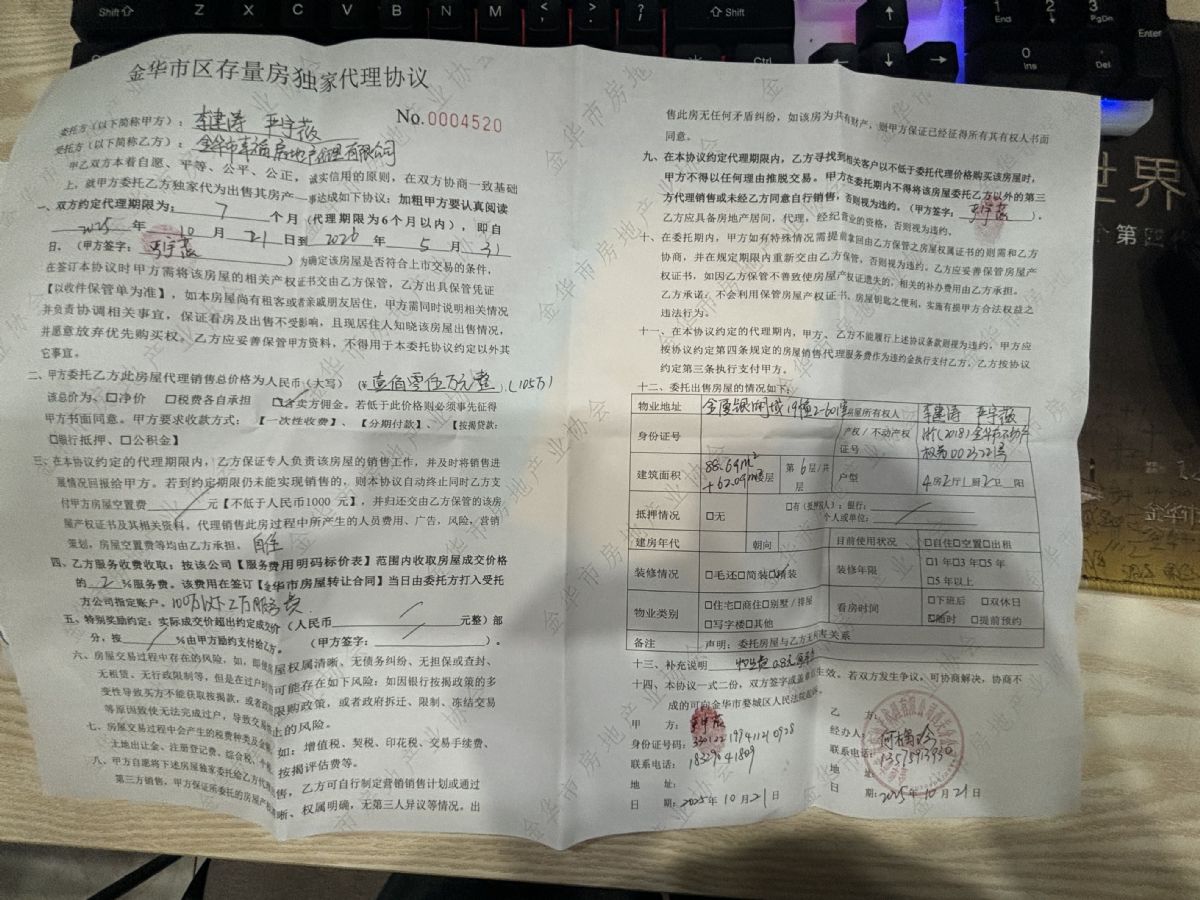 金华市区存量房独家代理协议
No.0004520
委托方(以下简称甲方):李建涛 严宇薇
受托方(以下简称乙方):金华市 房地产代理有限公司
甲乙双方本着自愿、平等、公平、公正,诚实信用的原则,在双方协商一致基础
上,就甲方委托乙方独家代为出售其房产一事达成如下协议:加粗甲方要认真阅读
一、双方约定代理期限为: 7 个月(代理期限为6个月以内),即自
2025 年 10 月 21 日到 2026 年 5 月 31
日。(甲方签字: 严宇薇 )为确定该房屋是否符合上市交易的条件,
在签订本协议时甲方需将该房屋的相关产权证书交由乙方保管,乙方出具保管凭证
【以收件保管单为准】,如本房屋尚有租客或者亲戚朋友居住,甲方需同时说明相关情况
并负责协调相关事宜,保证看房及出售不受影响,且现居住人知晓该房屋出售情况,
并愿意放弃优先购买权。乙方应妥善保管甲方资料,不得用于本委托协议约定以外其
它事宜。
二、甲方委托乙方此房屋代理销售总价格为人民币(大写)(¥壹佰零伍万元整)(105万)
该总价为、□净价 □税费各自承担 ☑含卖方佣金。若低于此价格则必须事先征得
甲方书面同意。甲方要求收款方式:【一次性收费】、【分期付款】、【按揭贷款:
□银行抵押、□公积金】
三、在本协议约定的代理期限内,乙方保证专人负责该房屋的销售工作,并及时将销售进
展情况回报给甲方。若到约定期限仍未能实现销售的,则本协议自动终止同时乙方支
付甲方房屋空置费 元【不低于人民币1000元】,并归还交由乙方保管的该房
屋产权证书及其相关资料,代理销售此房过程中所产生的人员费用、广告,风险,营销
策划,房屋空置费等均由乙方承担。 自住
四、乙方服务收费收取:按该公司【服务费用明码标价表】范围内收取房屋成交价格
的 2 %服务费。该费用在签订【金华市房屋转让合同】当日由委托方打入受托
方公司指定账户。100万以下2万服务费
五、特别奖励约定:实际成交价超出约定成交价(人民币 元整)部
分,按 %由甲方励约支付给乙方。 (甲方签字: )。
六、房屋交易过程中存在的风险,如,即使房屋权属清晰、无债务纠纷、无担保或查封、
无租赁、无行政限制等,但是在过户时可能存在如下风险:如因银行按揭政策的多
变性导致买方不能获取按揭款,或者政府限购政策,或者政府拆迁、限制、冻结交易
等原因致使无法完成过户,导致交易终止的风险。
七、房屋交易过程中会产生的税费种类及金额 如:增值税、契税、印花税、交易手续费、
土地出让金、注册登记费、综合税、个税 按揭评估费等。
八、甲方自愿将下述房屋独家委托给乙方代理出售,乙方可自行制定营销销售计划或通过
第三方销售,甲方保证所委托的房屋产权清晰、权属明确,无第三人异议等情况。出
售此房无任何矛盾纠纷,如该房为共有财产,则甲方保证已经征得所有其有权人书面
同意。
九、在本协议约定代理期限内,乙方寻找到相关客户以不低于委托代理价格购买该房屋时,
甲方不得以任何理由推脱交易。甲方在委托期内不得将该房屋委托乙方以外的第三
方代理销售或未经乙方同意自行销售,否则视为违约。(甲方签字: 严宇薇 )。
乙方应具备房地产居间,代理,经纪营业的资格,否则视为违约。
十、在委托期内,甲方如有特殊情况需提前拿回由乙方保管之房屋权属证书的则需和乙方
协商,并在规定期限内重新交由乙方保管,否则视为违约。乙方应妥善保管房屋产
权证书,如因乙方保管不善致使房屋产权证遗失的,相关的补办费用由乙方承担。
乙方承诺:不会利用保管房屋产权证书、房屋钥匙之便利,实施有损甲方合法权益之
违法行为。
十一、在本协议约定的代理期内,甲方、乙方不能履行上述协议条款则视为违约,甲方应
按协议约定第四条规定的房屋销售代理服务费作为违约金执行支付乙方,乙方按协议
约定第三条执行支付甲方。
十二、委托出售房屋的情况如下:
物业地址 金厦银湖城19幢2-601室 房屋所有权人 李建涛 严宇薇
身份证号 产权/不动产权证号 浙(2018)金华市不动产权第0023221号
建筑面积 88.64m²+62.09m² 楼层 第6层/共 层 户型 4房2厅1厨2卫 阳
抵押情况 □无 □有(抵押权人):银行: 个人或单位:
建房年代 朝向 目前使用状况 □自住□空置□出租
装修情况 □毛坯□简装☑精装 装修年限 □1年□3年□5年 □5年以上
物业类别 □住宅□商住□别墅/排屋 □写字楼□其他 看房时间 □下班后 □双休日 ☑随时 □提前预约
备注 声明:委托房屋与乙方无利害关系
十三、补充说明 物业费0.8元
十四、本协议一式二份,双方签字或盖章后生效。若双方发生争议,可协商解决,协商不
成的可向金华市婺城区人民法院起诉。
甲 方: 严宇薇
身份证号码: 330122199411210928
联系电话:
地 址:
日 期:2025年 10月21日
乙
经办人:
联系电话:
地 址:
日 期:2025年 10月21日
Shift
Z X C V B N M
Shift
Ctrl
1 End
2
3 PgDn
0 Ins
Del
Enter
世界